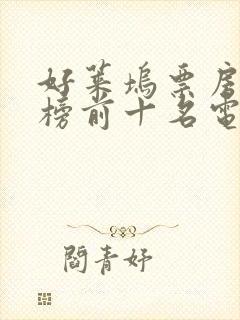 好莱坞票房
榜前十名電
閻青妤